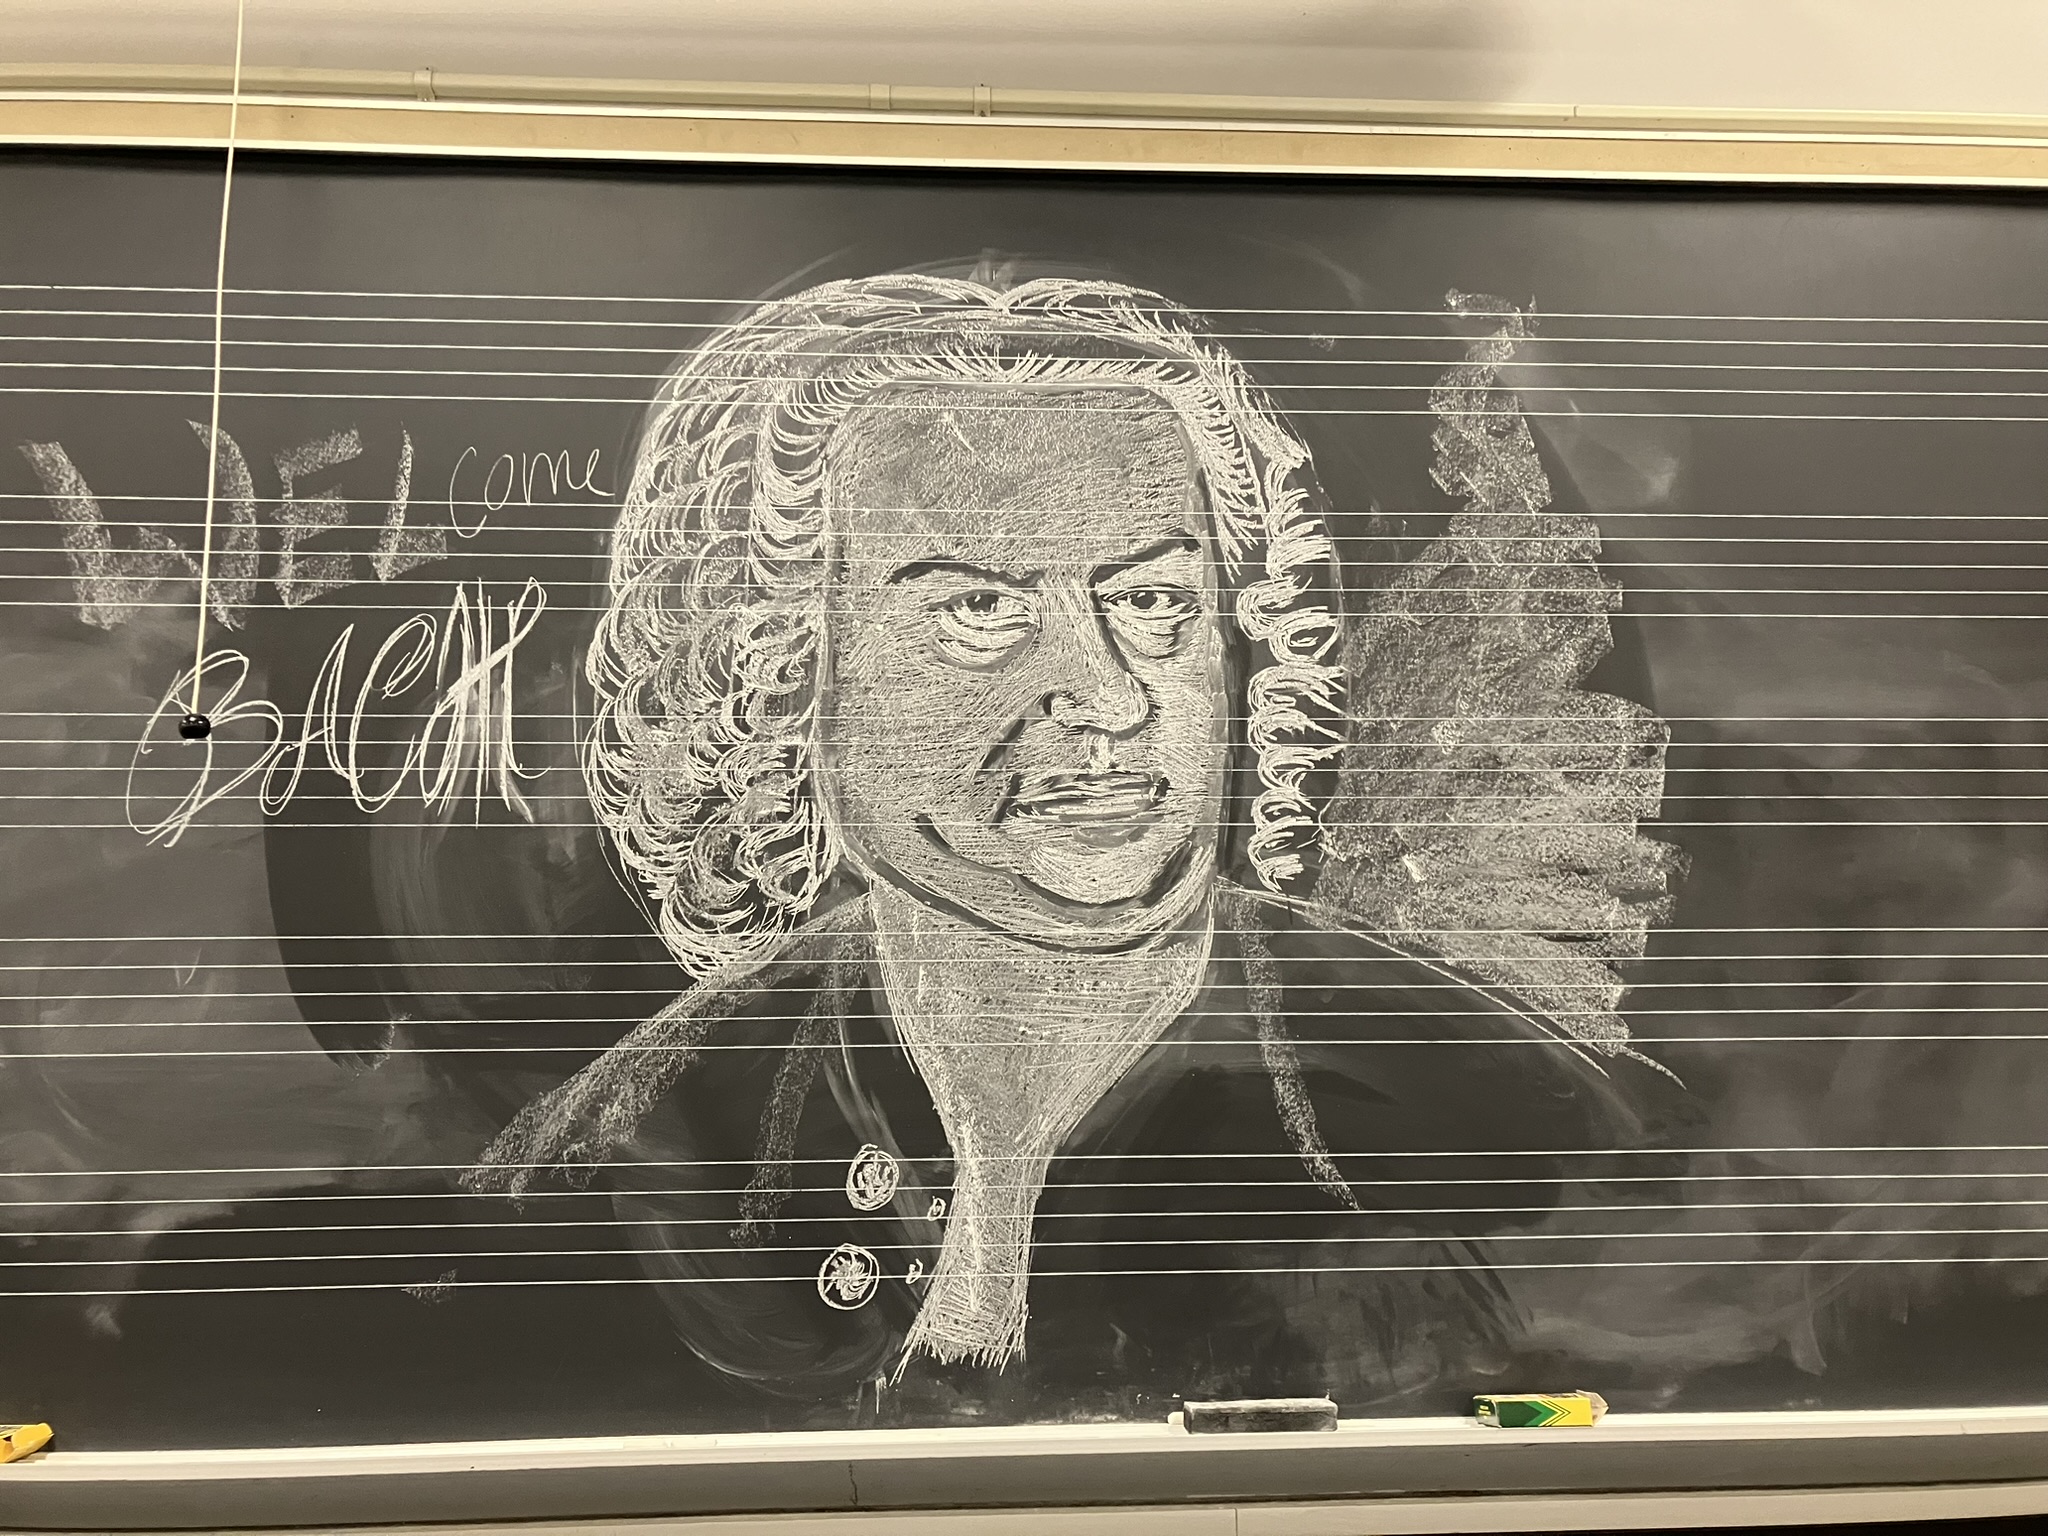 WELcome
BACH